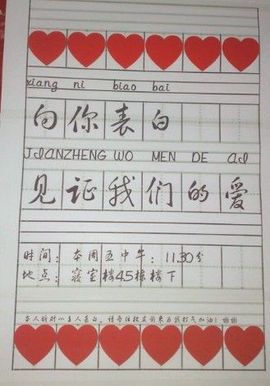 xiang ni biao bai
向你表白
JIANZHENG WO MEN DE AI
见证我们的爱
时间：本周五中午：11.30分
地点：寝室楼45栋楼下